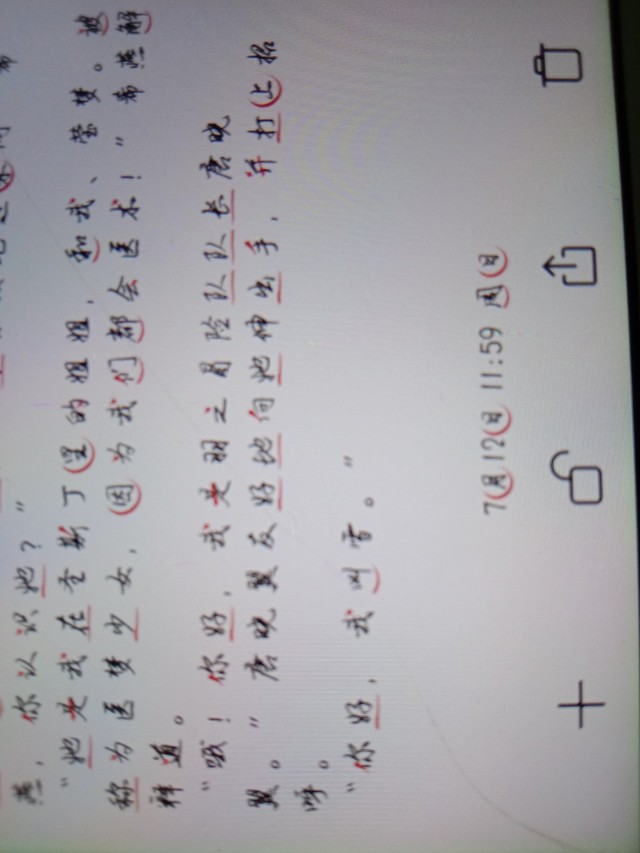 燕，你认识她？”
“她是我在圣斯丁里的姐姐，和我、莹梦。被
称为医梦少女，因为我们都会医术！”希燕解
释道。
“哦！你好，我是羽之冒险队队长唐晓
翼。”唐晓翼友好地向她伸出手，并打上招
呼。
“你好，我叫雪。”
7月12日 11:59 周日